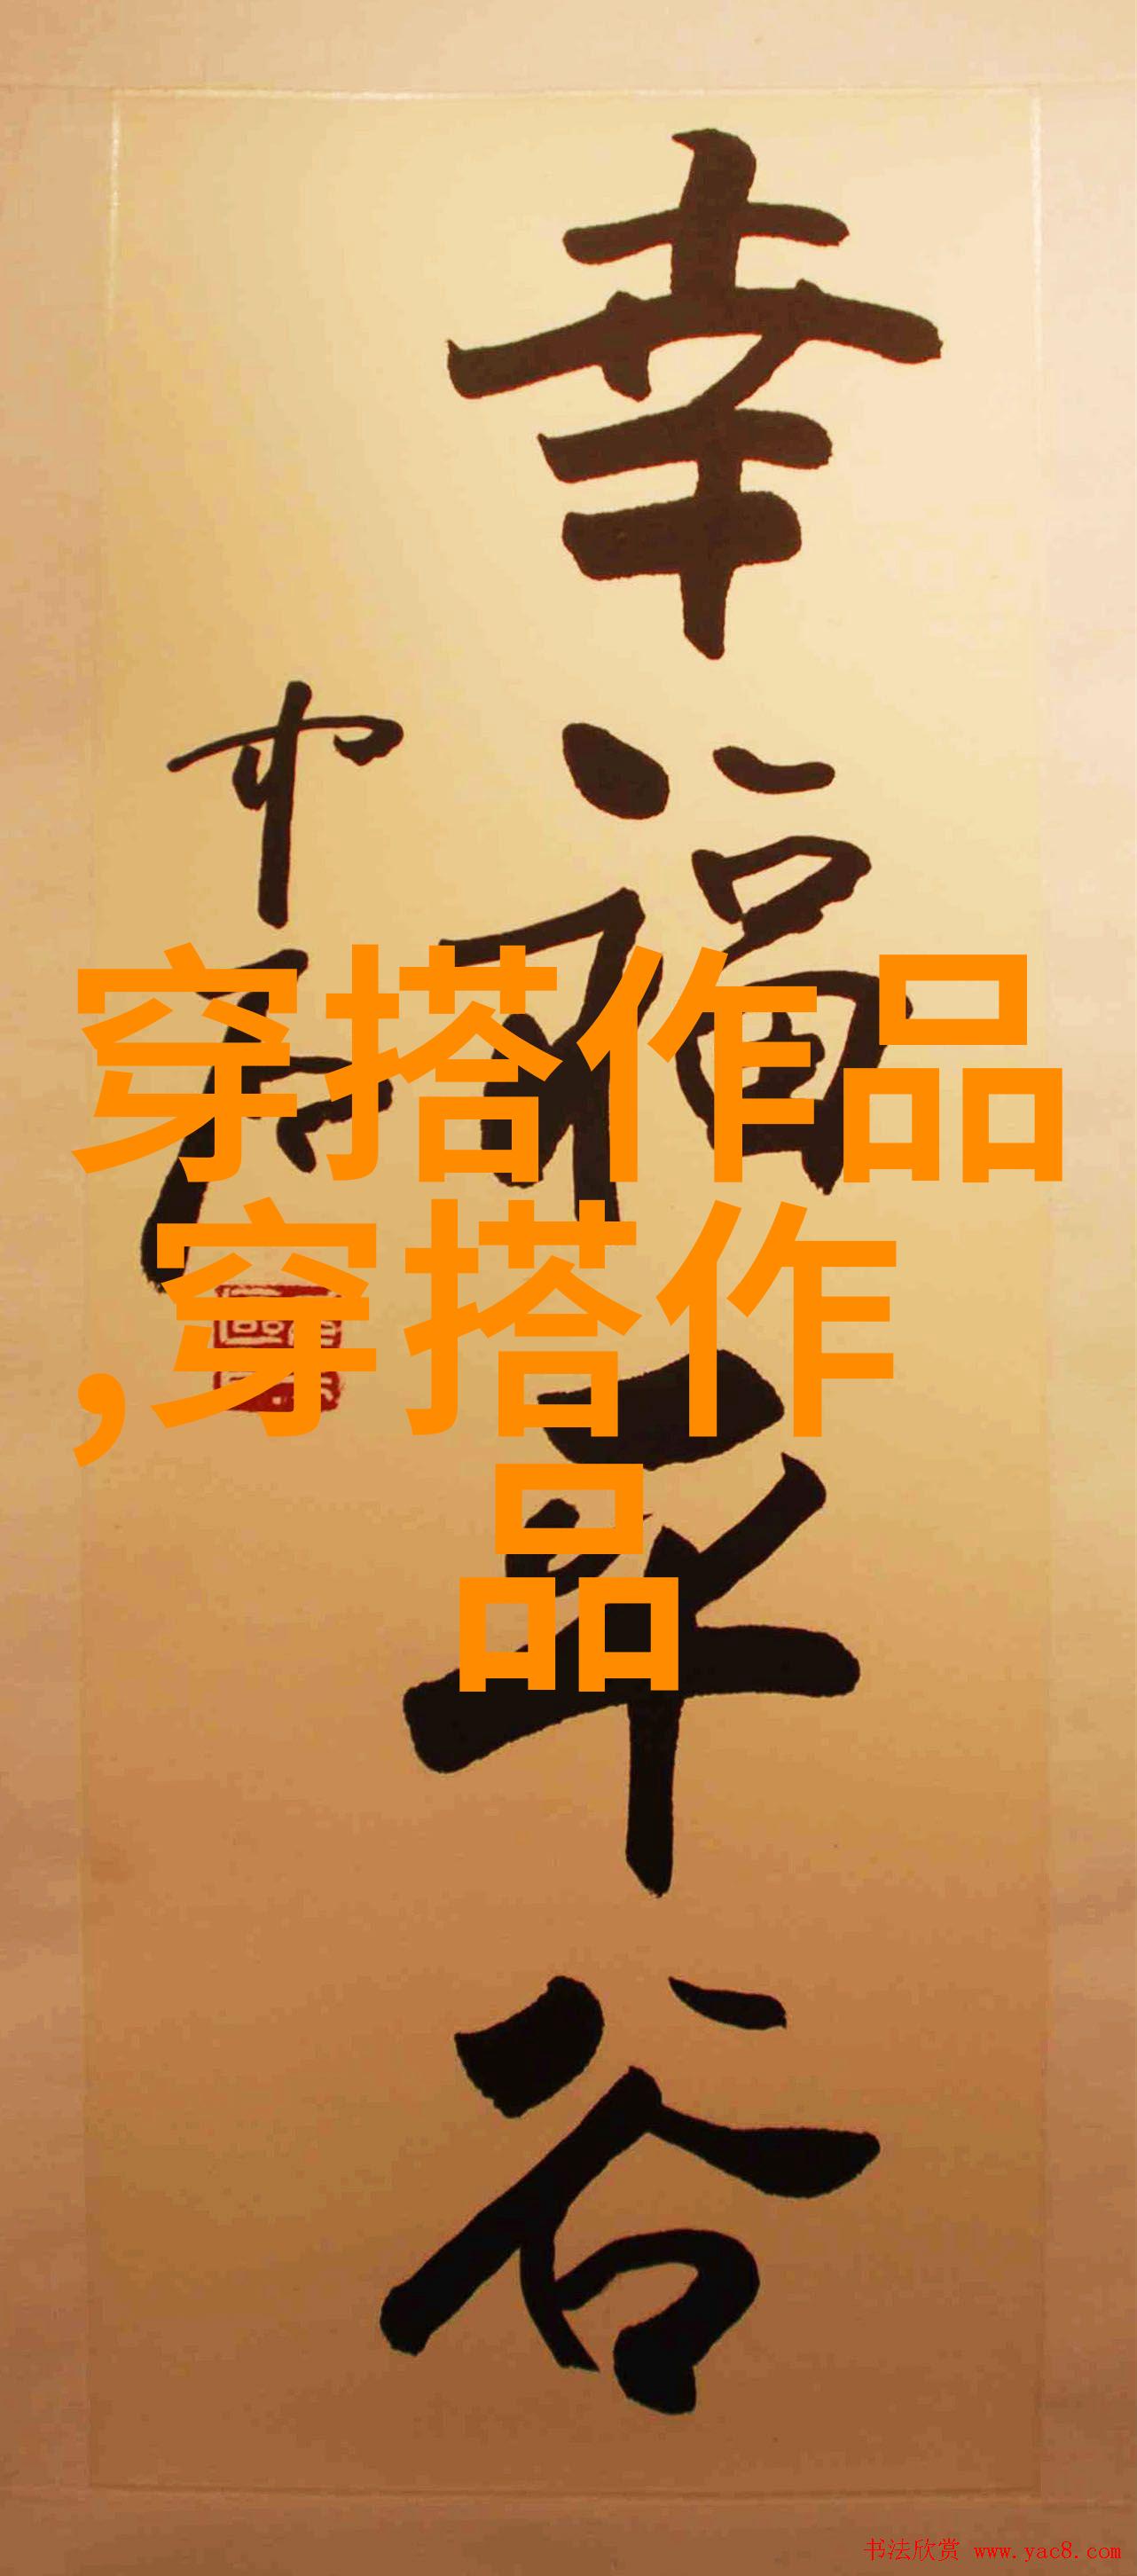 幸福平谷
中石
穿搭作品
,穿搭作
品
书法欣赏 www.yac8.com